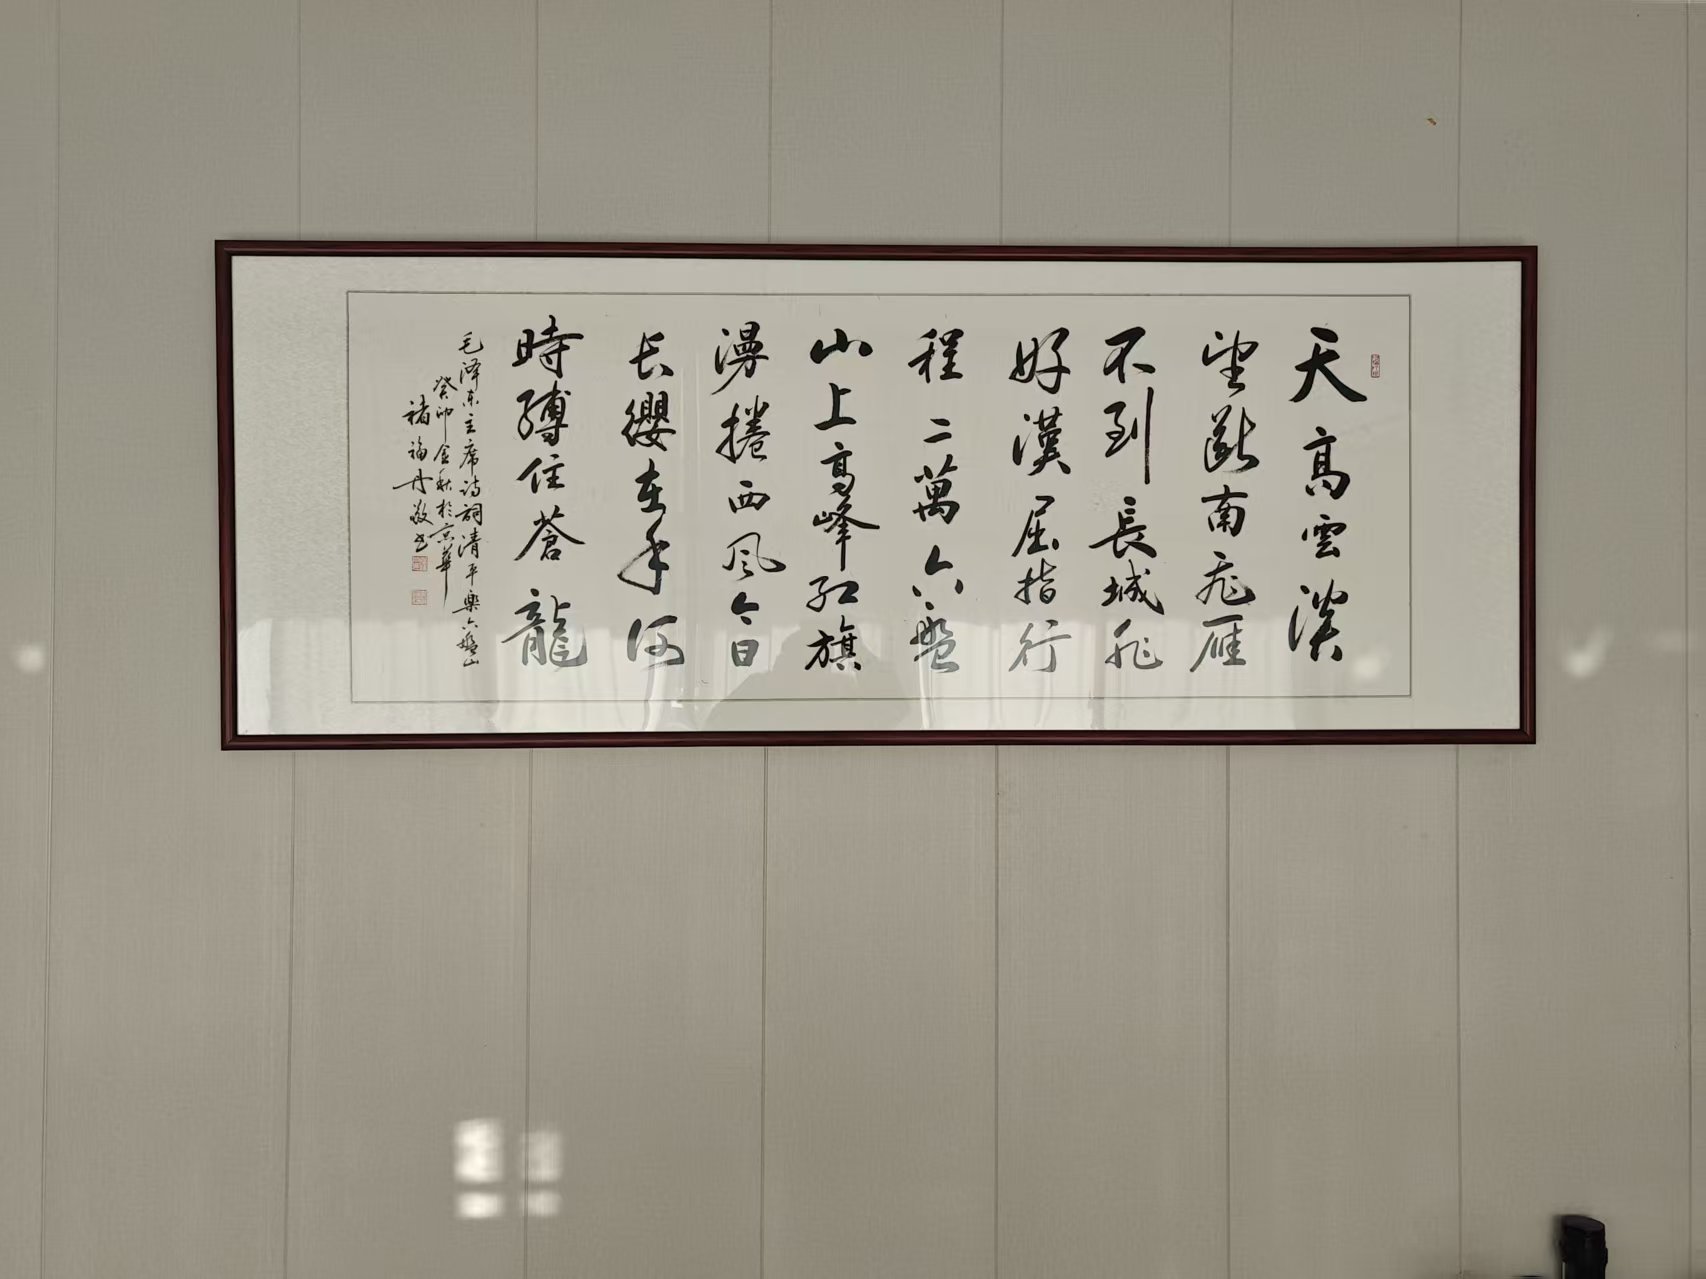 天高雲淡
望斷南飛雁
不到長城非
好漢屈指行
程二萬六盤
山上高峰紅旗
漫捲西風今日
长纓在手何
時縛住蒼龍
毛泽东主席诗詞清平樂六盤山
癸卯金秋於京華
褚福丹敬书